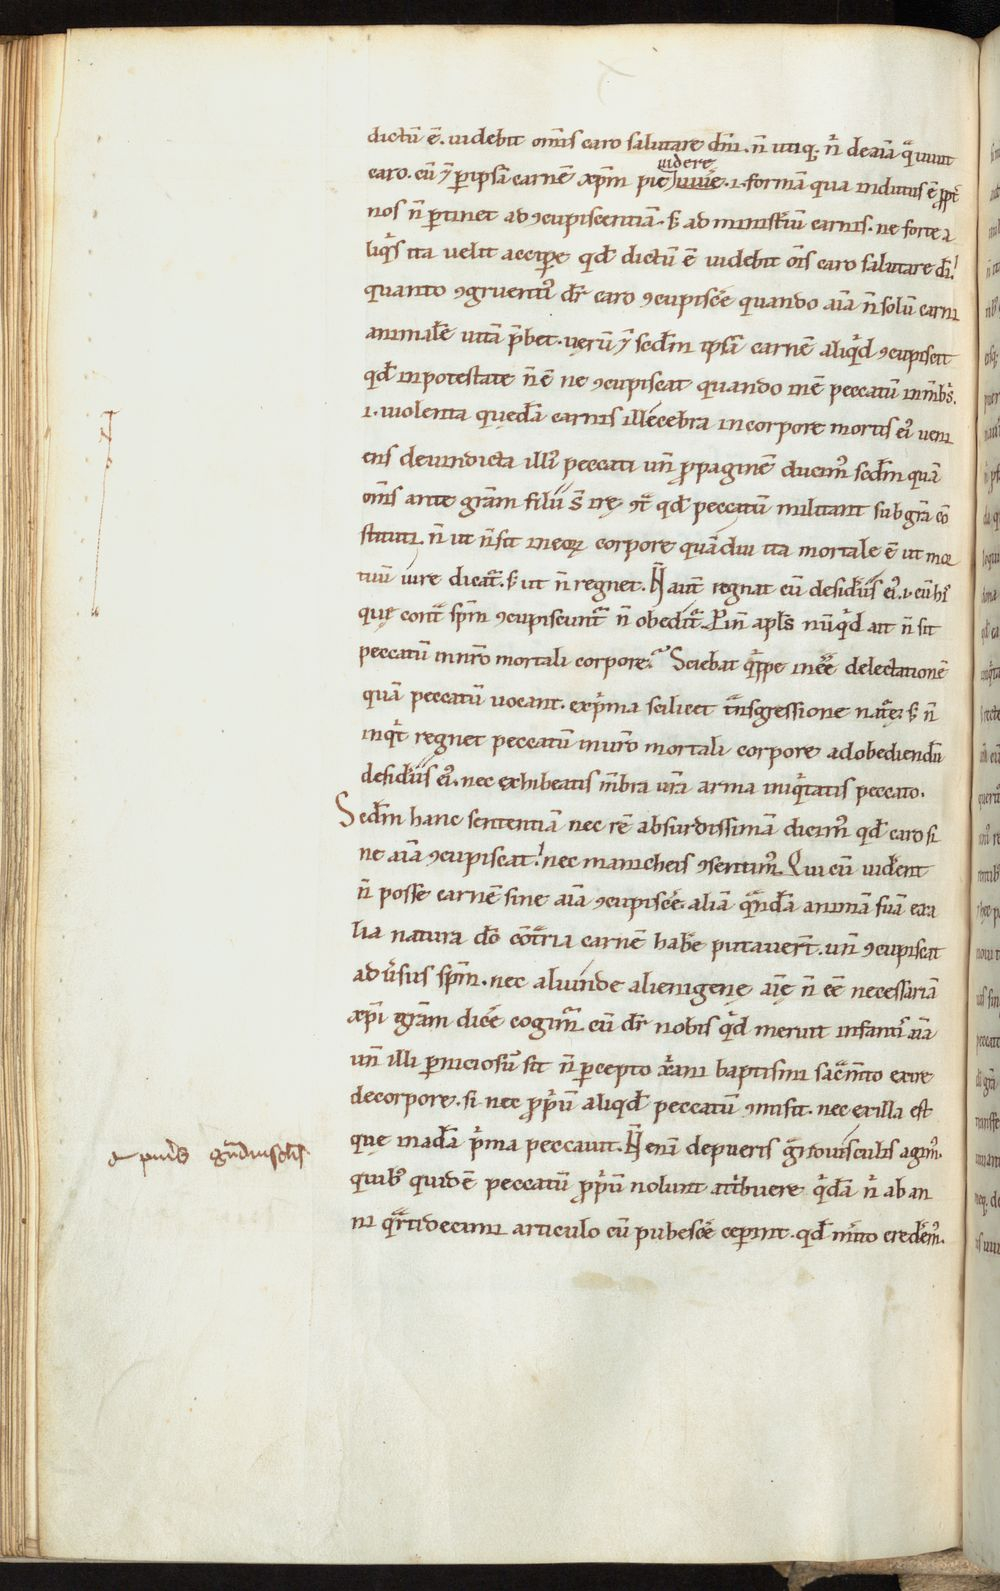 dictū ē. uidebit om̄is caro salutare dn̄i. n̄ utiq;. n̄ de aīa q̄ uiuit
uidere
caro. cū ⁊ ꝑ ipsā carnē xp̄m pie uiuē. ı. formā qua indutus ē ꝓpt̄
nos n̄ ꝑtinet ad ꝯcupiscentiā. s; ad ministīū carnis. ne forte a
liq̄s ita uelit accipe qd̄ dictū ē uidebit oīs caro salutare dī.
quanto ꝯgruentı͛ dr̄ caro ꝯcupisce͛ quando aīa n̄ solū carni
animalē uitā p̄bet. uerū ⁊ sedm̄ ipsā carnē aliq̄d ꝯcupiscit
qd̄ in potestate n̄ ē ne ꝯcupiscat quando inē peccatū in mb̄ris.
ı. uiolenta quedā carnis illecebra in corpore mortis eı͛ ueni
ens de uindicta illı͛ peccati un̄ ꝓpaginē ducim͛ sedm̄ quā
om̄s ante gr̄am filii s̄ irę qd̄ peccatū militant sub gr̄a cō
stituti. n̄ ut n̄ sit in eoꝝ corpore quādiu ita mortale ē ut mor
tuū iure dicat͛. s; ut n̄ regnet. N̄ aut̄ regnat cū desid̄iis eı͛. ı. cū hı͛
quę cont͛ sp̄m ꝯcupiscunt͛ n̄ obedit͛. apl̄s nūq̄d ait n̄ sit
peccatū in nr̄o mortali corpore? Sciebat q̄ppe delectationē
quā peccatū uocant. exp̄ma scilicet t͛nsgressione s; n̄
inq̄t regnet peccatū in uro mortali corpore ad obediendū
desid̄iis eı͛. nec exhibeatis m̄bra ur̄a arma iniq̄tatis peccato.
Sedm̄ hanc sententiā nec rē absurdissimā dicim͛ qd̄ caro si
ne aīa ꝯcupiscat. nec manicheis ꝯsentim͛. Qui cū uid̄ent
n̄ posse carnē sine aīa ꝯcupisce͛. aliā q͛ndā animā suā ex a
lia natura dō cōt͛riā carnē hab̄e putauer̄t. un̄ ꝯcupiscat
adu͛sus sp̄m. nec aliunde alienigenę aīę n̄ ee necessariā
xp̄i gr̄am dice͛ cogim͛. cū dr̄ nobis q̄d meruit infantı͛ aīa
un̄ illi ꝑniciosū sit n̄ percepto xr̄ani baptismi sac͛m̄to exire
de corpore. si nec ꝓp̄ū aliqd̄ peccatū ꝯmisit. nec ex illa est
quę in adā p̄ma peccauit. N̄ eni de pueris g͛ndiusculis agim͛.
quib͛ quidē peccatū ꝓp̄ū nolunt at͛buere q̄dā n̄ ab an
ni q͛rtidecimi articulo cū pubesce͛ ceper̄int. qd̄ m͛ito cred̄em͛.
de pueris g͛ndiusculis